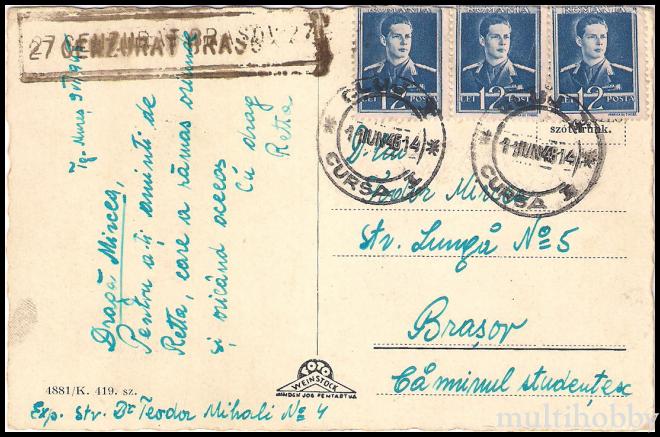 27 CENZURAT BRAȘOV 27
ROMANIA
LEI 12 POSTA
ROMANIA
LEI 12 POSTA
ROMANIA
LEI 12 POSTA
CLUJ
1 IUN 45 14
CURSA 1
CLUJ
1 IUN 45 14
CURSA 1
Dragă Mircea,
Pentru a-ți aminti de
Retta, care a rămas oricum
și oricând aceeaș
Cu drag
Retta
Teodor Mircea
Str. Lungă No 5
Brașov
Căminul studențesc
FOTO
WEINSTOCK
MINDEN JOB PAPIRBAN
4881/K. 419. sz.
Exp. str. Dr Teodor Mihali No 4
multihobby